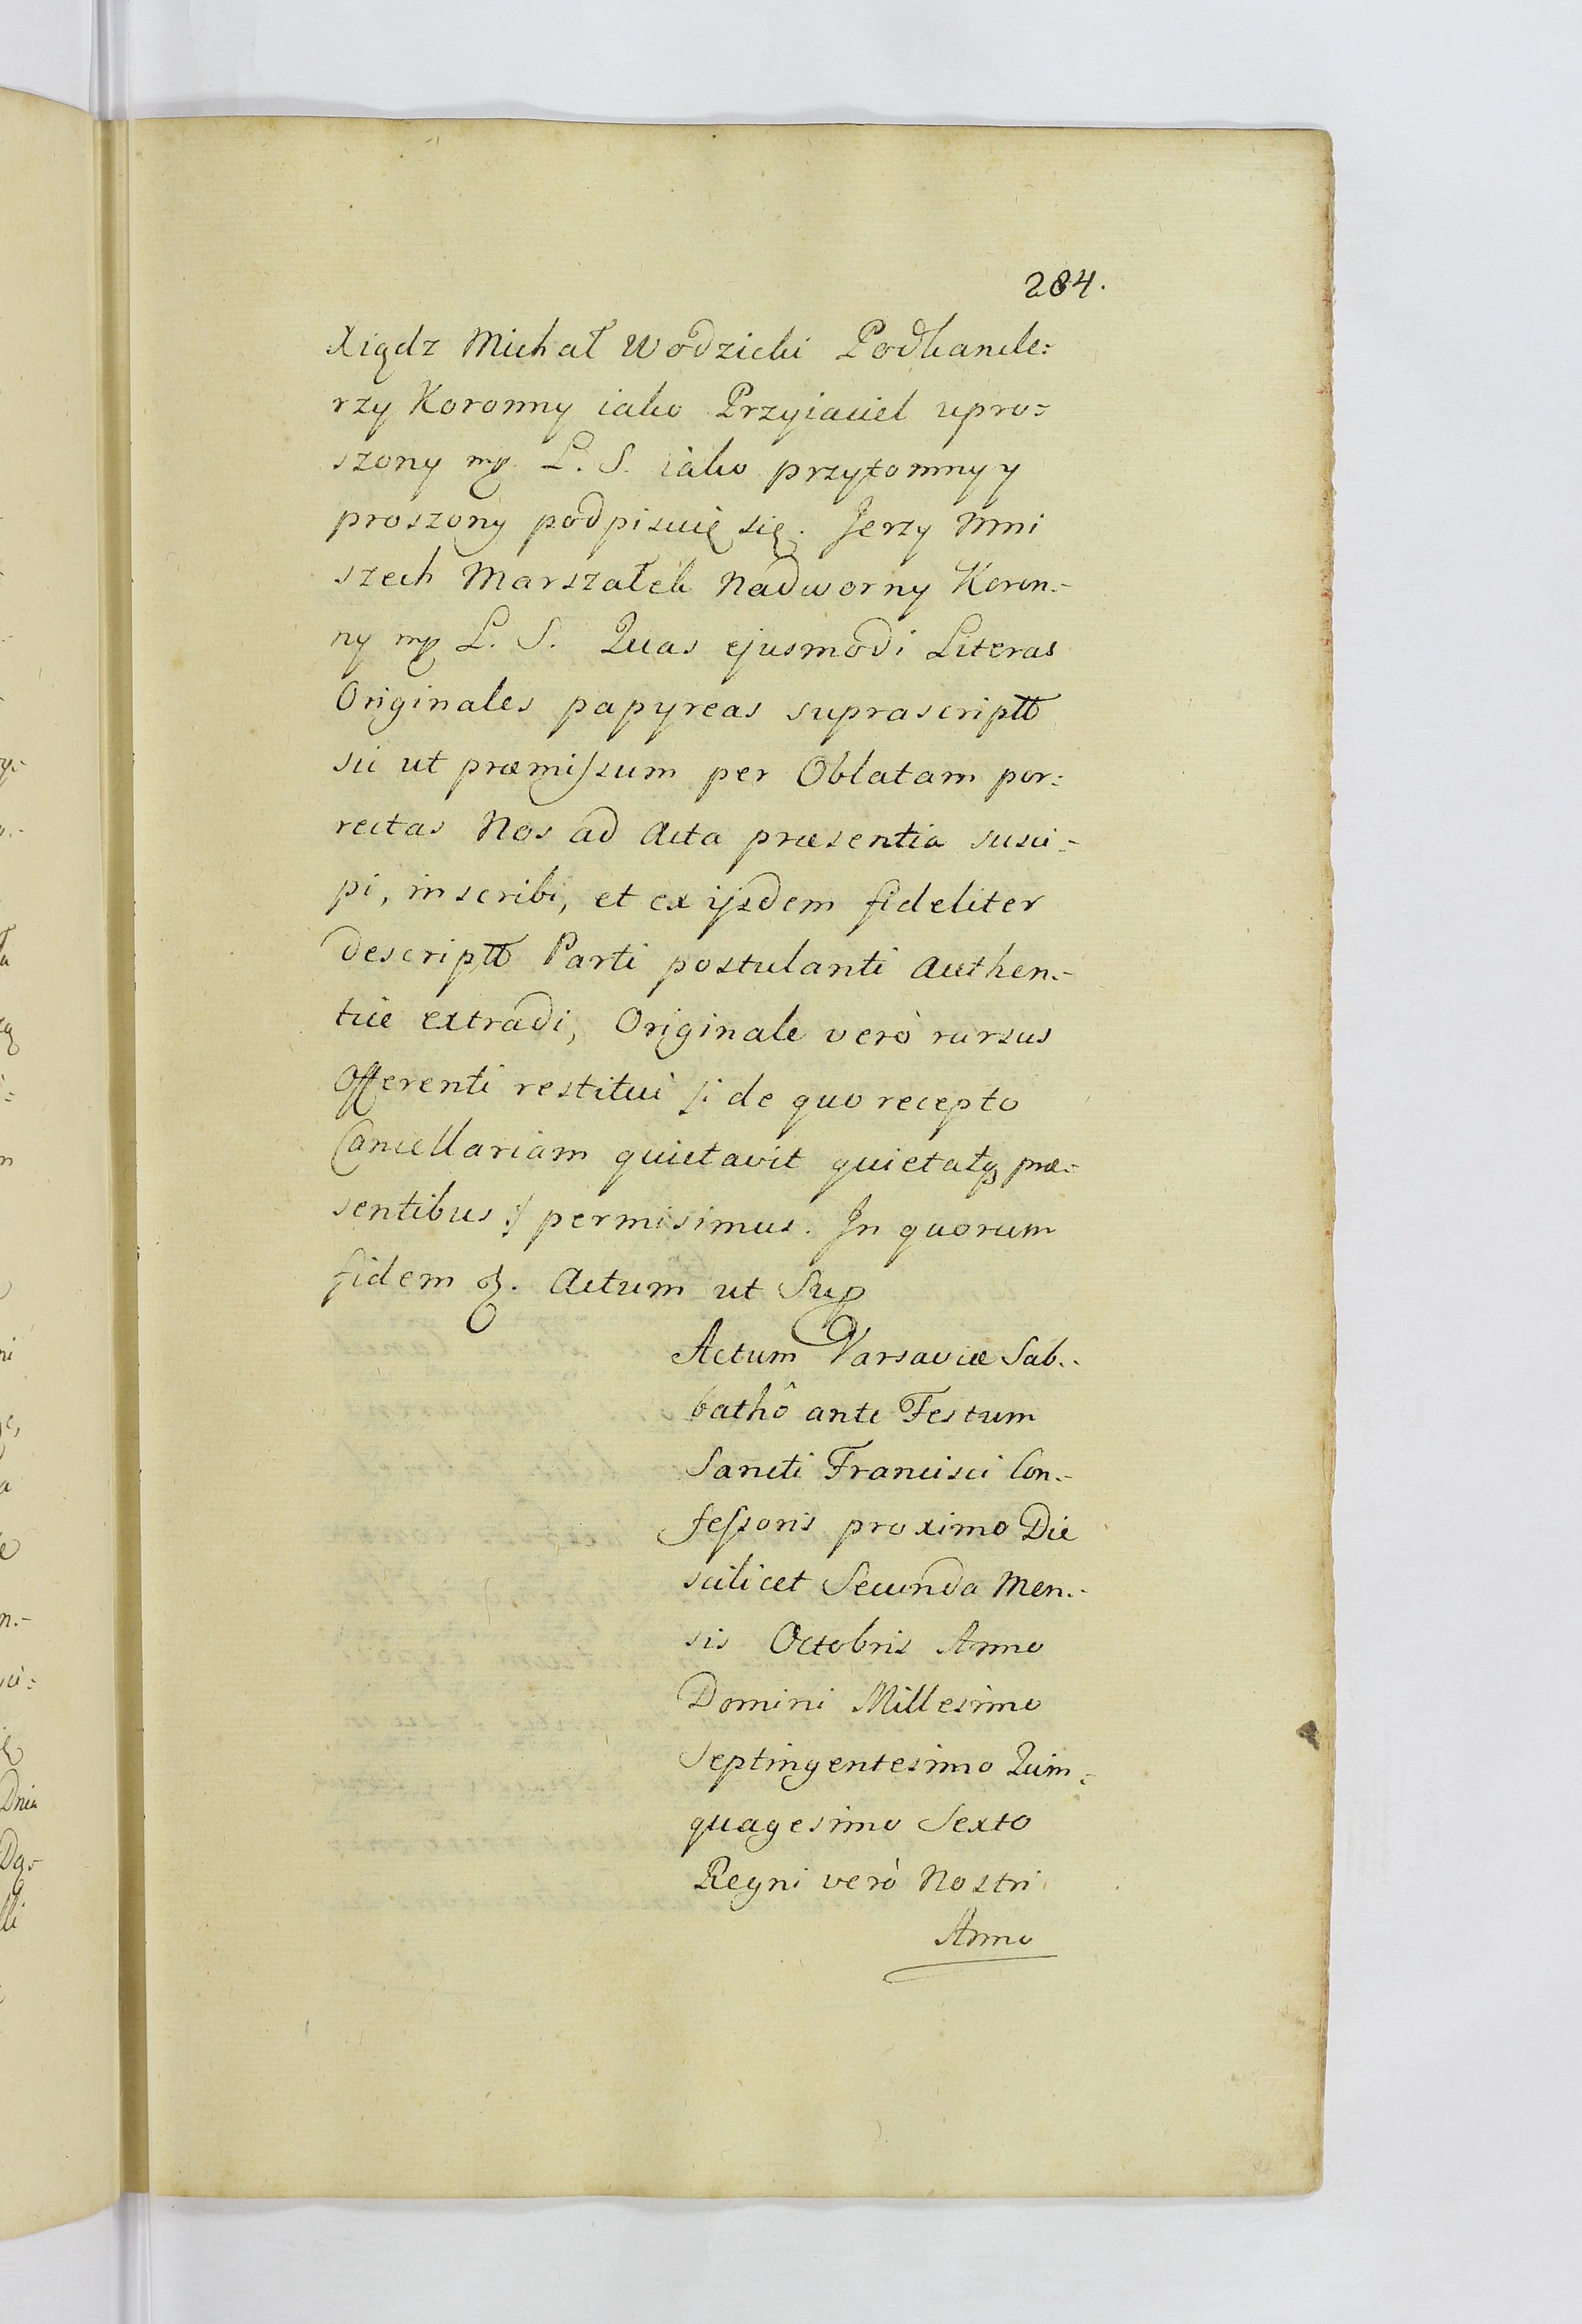 284.
Xiądz Michał Wodzicki Podkancle:
rzy Koronny iako Przyiaciel upro:
szony mp. L. S. iako przytomny y
proszony podpisuię się. Jerzy Mni
szech Marszałek Nadworny Koron.-
ny mp L. S. Quas ejusmodi Literas
Originales papyreas suprascriptt
sic ut præmissum per Oblatam por:
rectas Nos ad Acta præsentia susci-
pi, inscribi, et ex ijsdem fideliter
descriptt Parti postulanti Authen.-
tice extradi, Originale verò rursus
Offerenti restitui /: de quo recepto
Cancellariam quietavit quietatq præ.-
sentibus :/ permisimus. In quorum
fidem &. Actum ut Sup
Actum Varsaviæ Sab.-
bathô ante Festum
Sancti Francisci Con.-
fessoris proximo Die
scilicet Secunda Men.-
sis Octobris Anno
Domini Millesimo
Septingentesimo Quin:
quagesimo Sexto
Regni verò Nostri
Anno